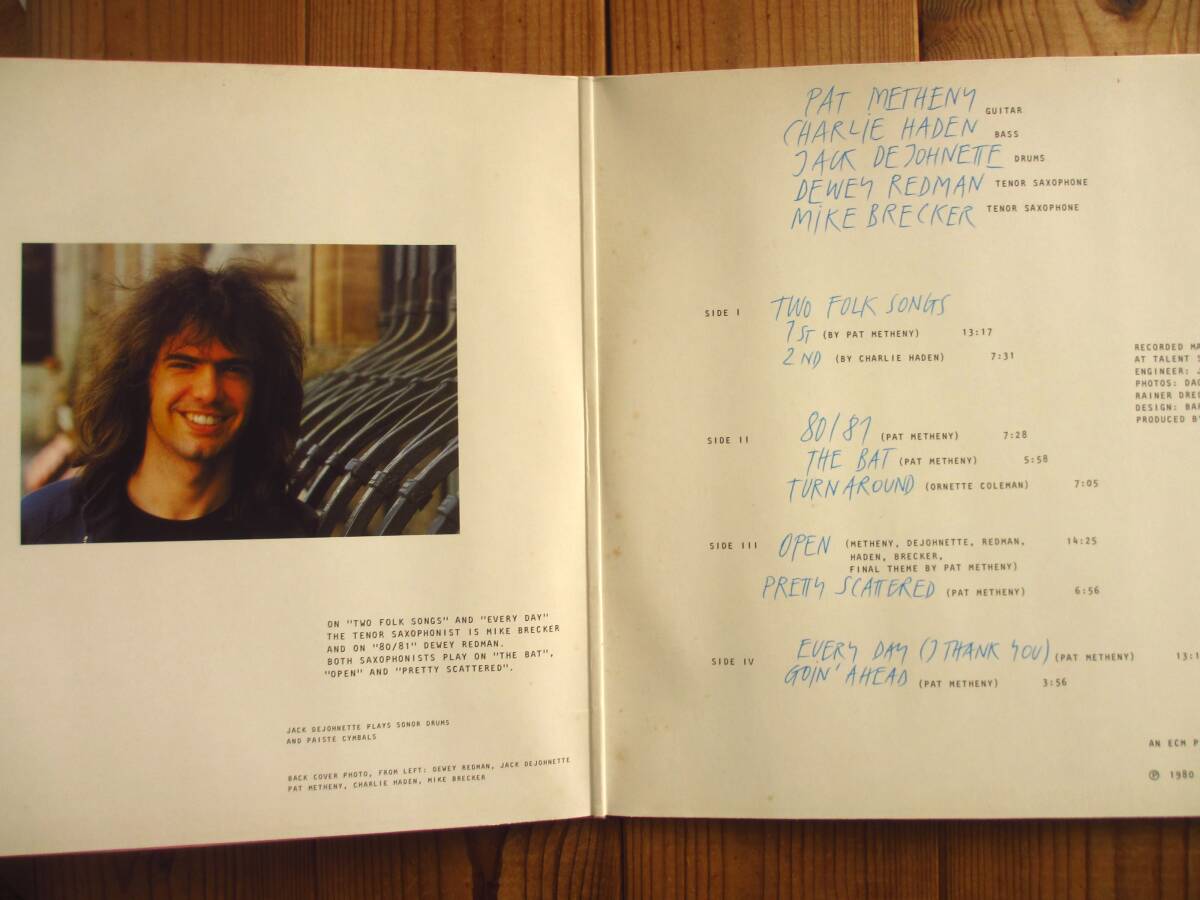 ON "TWO FOLK SONGS" AND "EVERY DAY"
THE TENOR SAXOPHONIST IS MIKE BRECKER
AND ON "80/81" DEWEY REDMAN.
BOTH SAXOPHONISTS PLAY ON "THE BAT",
"OPEN" AND "PRETTY SCATTERED".
JACK DEJOHNETTE PLAYS SONOR DRUMS
AND PAISTE CYMBALS
BACK COVER PHOTO, FROM LEFT: DEWEY REDMAN, JACK DEJOHNETTE
PAT METHENY, CHARLIE HADEN, MIKE BRECKER
PAT METHENY GUITAR
CHARLIE HADEN BASS
JACK DEJOHNETTE DRUMS
DEWEY REDMAN TENOR SAXOPHONE
MIKE BRECKER TENOR SAXOPHONE
SIDE I TWO FOLK SONGS
1ST (BY PAT METHENY) 13:17
2ND (BY CHARLIE HADEN) 7:31
SIDE II 80/81 (PAT METHENY) 7:28
THE BAT (PAT METHENY) 5:58
TURNAROUND (ORNETTE COLEMAN) 7:05
SIDE III OPEN (METHENY, DEJOHNETTE, REDMAN, 14:25
HADEN, BRECKER,
FINAL THEME BY PAT METHENY)
PRETTY SCATTERED (PAT METHENY) 6:56
SIDE IV EVERY DAY (I THANK YOU) (PAT METHENY)
GOIN' AHEAD (PAT METHENY) 3:56
RECORDED
AT TALENT
ENGINEER:
PHOTOS:
RAINER
DESIGN:
PRODUCED
AN ECM
℗ 1980